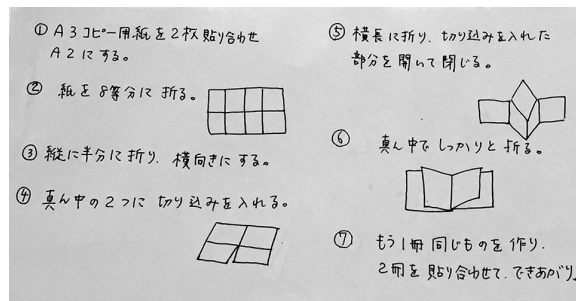 ① A3コピー用紙を2枚貼り合わせ
A2にする。
② 紙を8等分に折る。
③ 縦に半分に折り、横向きにする。
④ 真ん中の2つに切り込みを入れる。
⑤ 横長に折り、切り込みを入れた
部分を開いて閉じる。
⑥ 真ん中でしっかりと折る。
⑦ もう1冊同じものを作り、
2冊を貼り合わせて、できあがり。